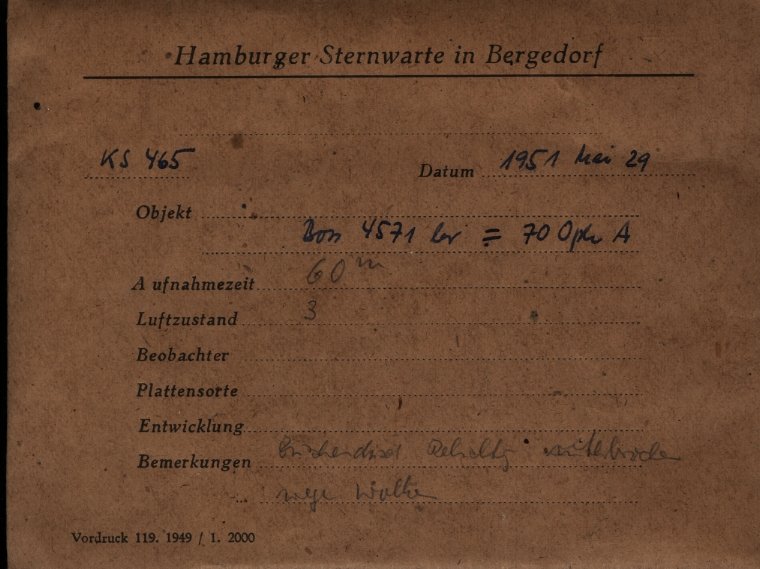 Hamburger Sternwarte in Bergedorf
KS 465
Datum 1951 Mai 29
Objekt
Boss 4571 br = 70 Oph A
Aufnahmezeit 60 m
Luftzustand 3
Beobachter
Plattensorte
Entwicklung
Bemerkungen unterbrochen
wege Wolken
Vordruck 119. 1949 / 1. 2000